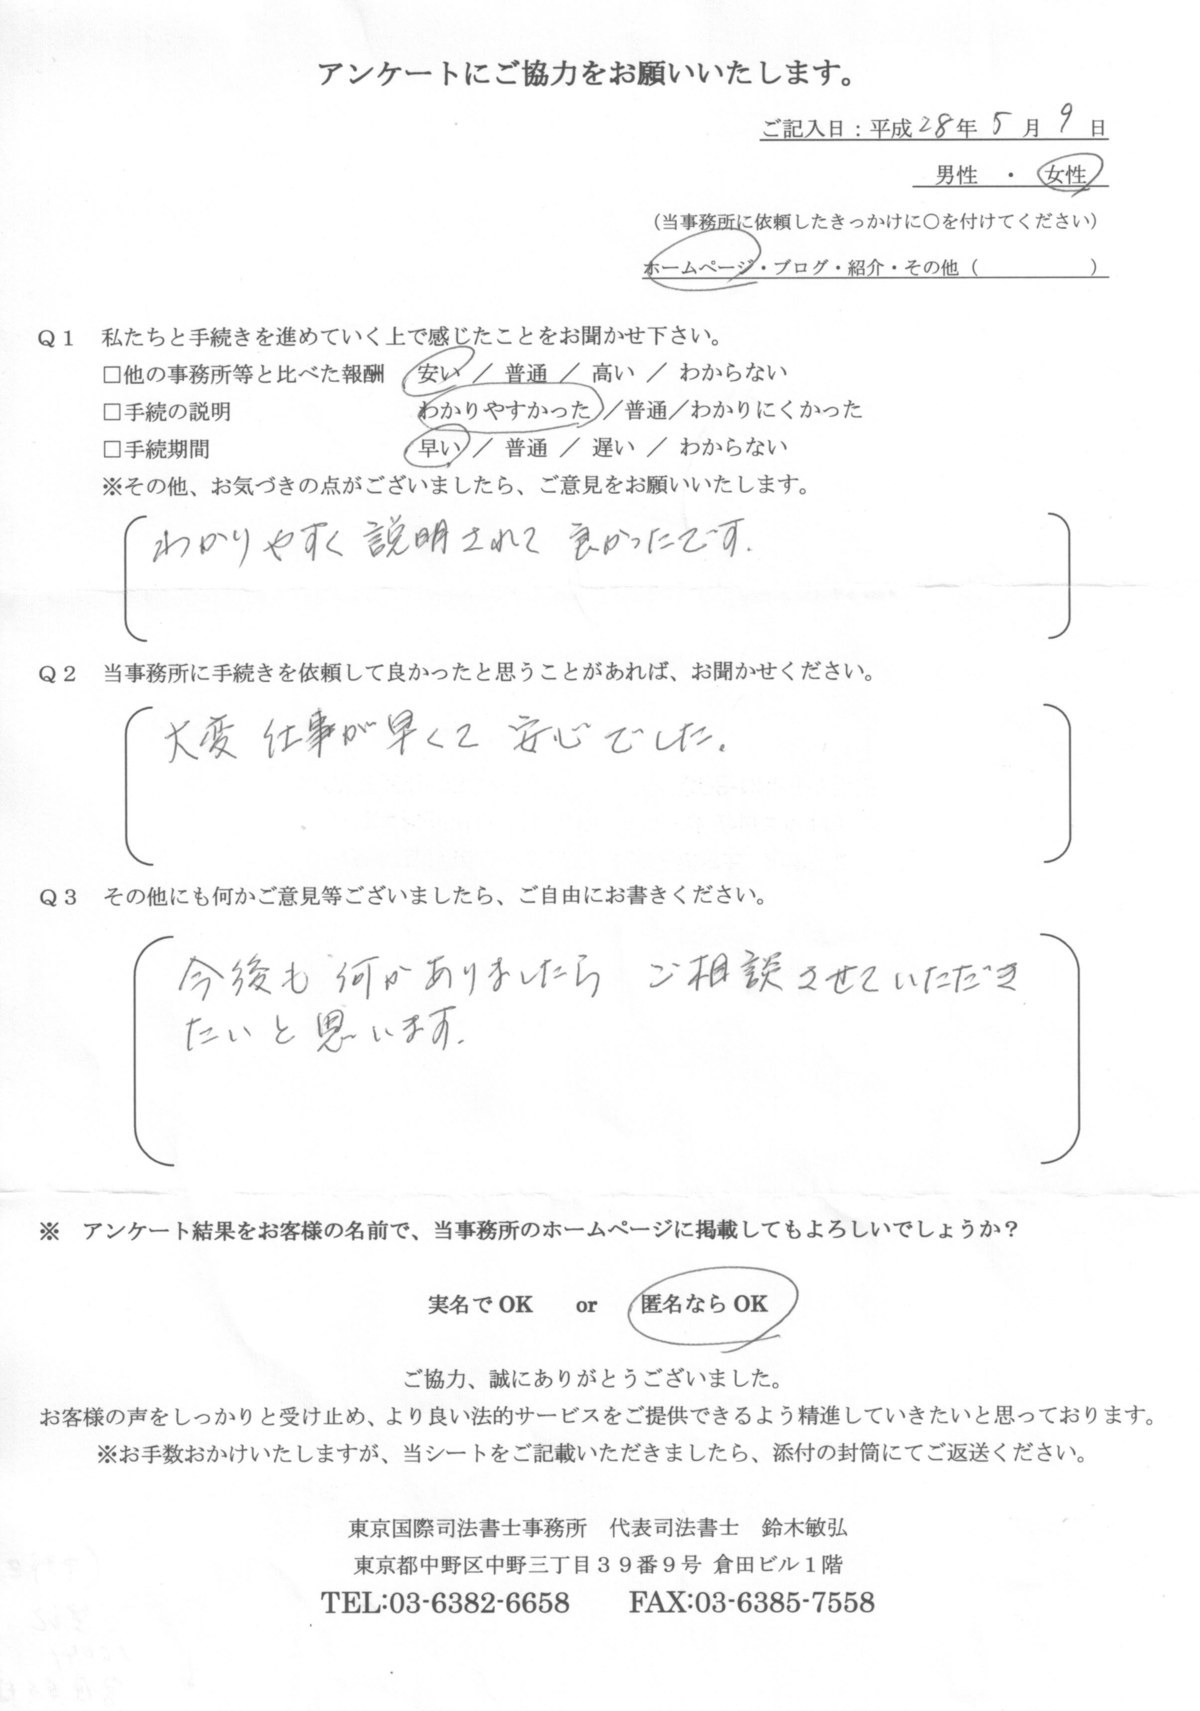 アンケートにご協力をお願いいたします。
ご記入日：平成28年5月9日
男性　・　女性
（当事務所に依頼したきっかけに○を付けてください）
ホームページ・ブログ・紹介・その他（　　　　　　）
Ｑ１　私たちと手続きを進めていく上で感じたことをお聞かせ下さい。
□他の事務所等と比べた報酬　安い ／ 普通 ／ 高い ／ わからない
□手続の説明　わかりやすかった／普通／わかりにくかった
□手続期間　早い ／ 普通 ／ 遅い ／ わからない
※その他、お気づきの点がございましたら、ご意見をお願いいたします。
わかりやすく説明されて良かったです.
Ｑ２　当事務所に手続きを依頼して良かったと思うことがあれば、お聞かせください。
大変仕事が早くて安心でした。
Ｑ３　その他にも何かご意見等ございましたら、ご自由にお書きください。
今後も何かありましたらご相談させていただき
たいと思います.
※　アンケート結果をお客様の名前で、当事務所のホームページに掲載してもよろしいでしょうか？
実名でOK　or　匿名ならOK
ご協力、誠にありがとうございました。
お客様の声をしっかりと受け止め、より良い法的サービスをご提供できるよう精進していきたいと思っております。
※お手数おかけいたしますが、当シートをご記載いただきましたら、添付の封筒にてご返送ください。
東京国際司法書士事務所　代表司法書士　鈴木敏弘
東京都中野区中野三丁目３９番９号 倉田ビル１階
TEL:03-6382-6658　FAX:03-6385-7558